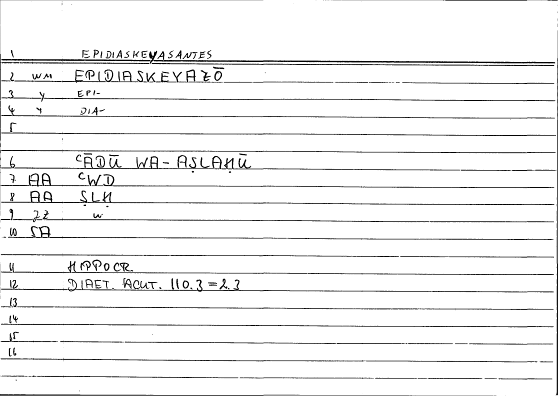 1 EPIDIASKEYASANTES
2 WM EPIDIASKEYAZŌ
3 Y EPI-
4 Y DIA-
5
6 ʿĀDŪ WA-AṢLAḤŪ
7 AA ʿWD
8 AA ṢLḤ
9 ZZ W
10 SA
11 HIPPOCR.
12 DIAET. ACUT. 110.3=2.3
13
14
15
16